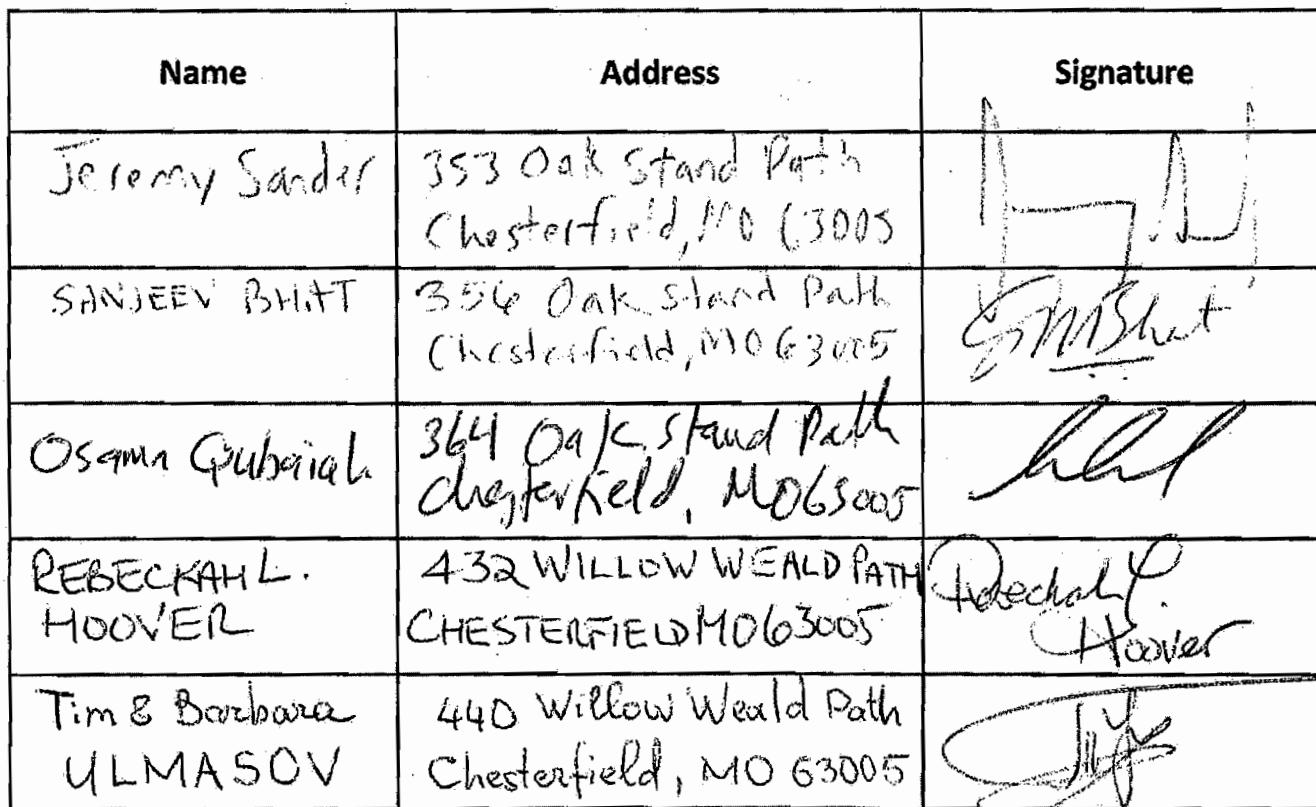 Name Address Signature
Jeremy Sander 353 Oak Stand Path
Chesterfield, MO 63005
SANJEEV BHATT 356 Oak Stand Path
Chesterfield, MO 63005
Bhat
Osama 364 Oak Stand Path
Chesterfield, MO 63005
REBECKAH L. 432 WILLOW WEALD PATH
HOOVER CHESTERFIELD MO 63005
Rebeckah L.
Hoover
Tim & Barbara 440 Willow Weald Path
ULMASOV Chesterfield, MO 63005